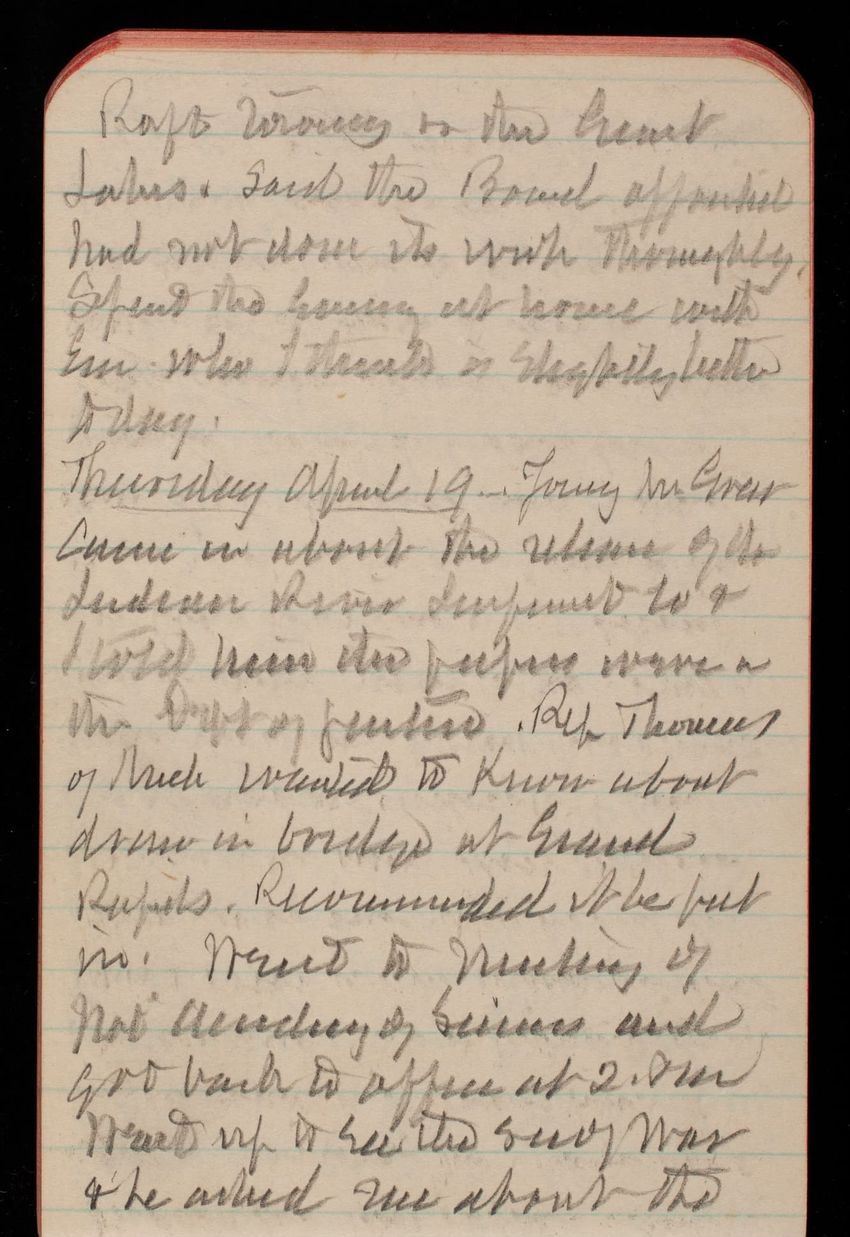 Raft towing on the Great
Lakes. Said the Board appointed
had not done its work thoroughly.
Spent the evening at home with
Em who I think is slightly better
today.
Thursday April 19 - Young McGrew
Came in about the release of the
Indian River
I told him the papers were in
the Dept of Justice. Rep Thomas
of Mich wanted to know about
draw in bridge at Grand
Rapids. Recommended it be put
in. Went to Meeting of
Nat Academy of Sciences and
got back to office at 2.
Went up to see the Sec of War
& he asked me about the